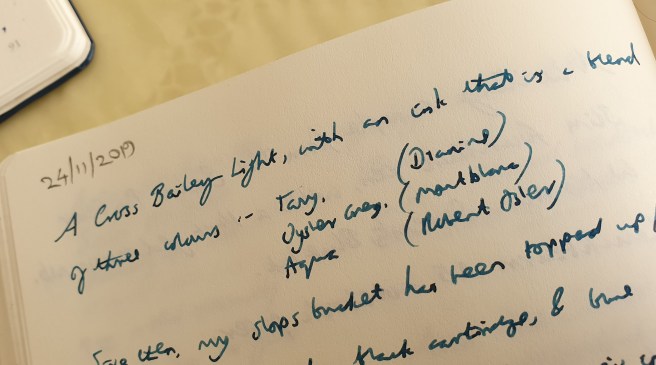 24/11/2019
A Cross Bailey Light, with an ink that is a blend
of three colours :- Tavy. (Diamine)
Oyster Grey. (Montblanc)
Aqua (Robert Oster)
then, my slops bucket has been topped up
black cartridge, & blue